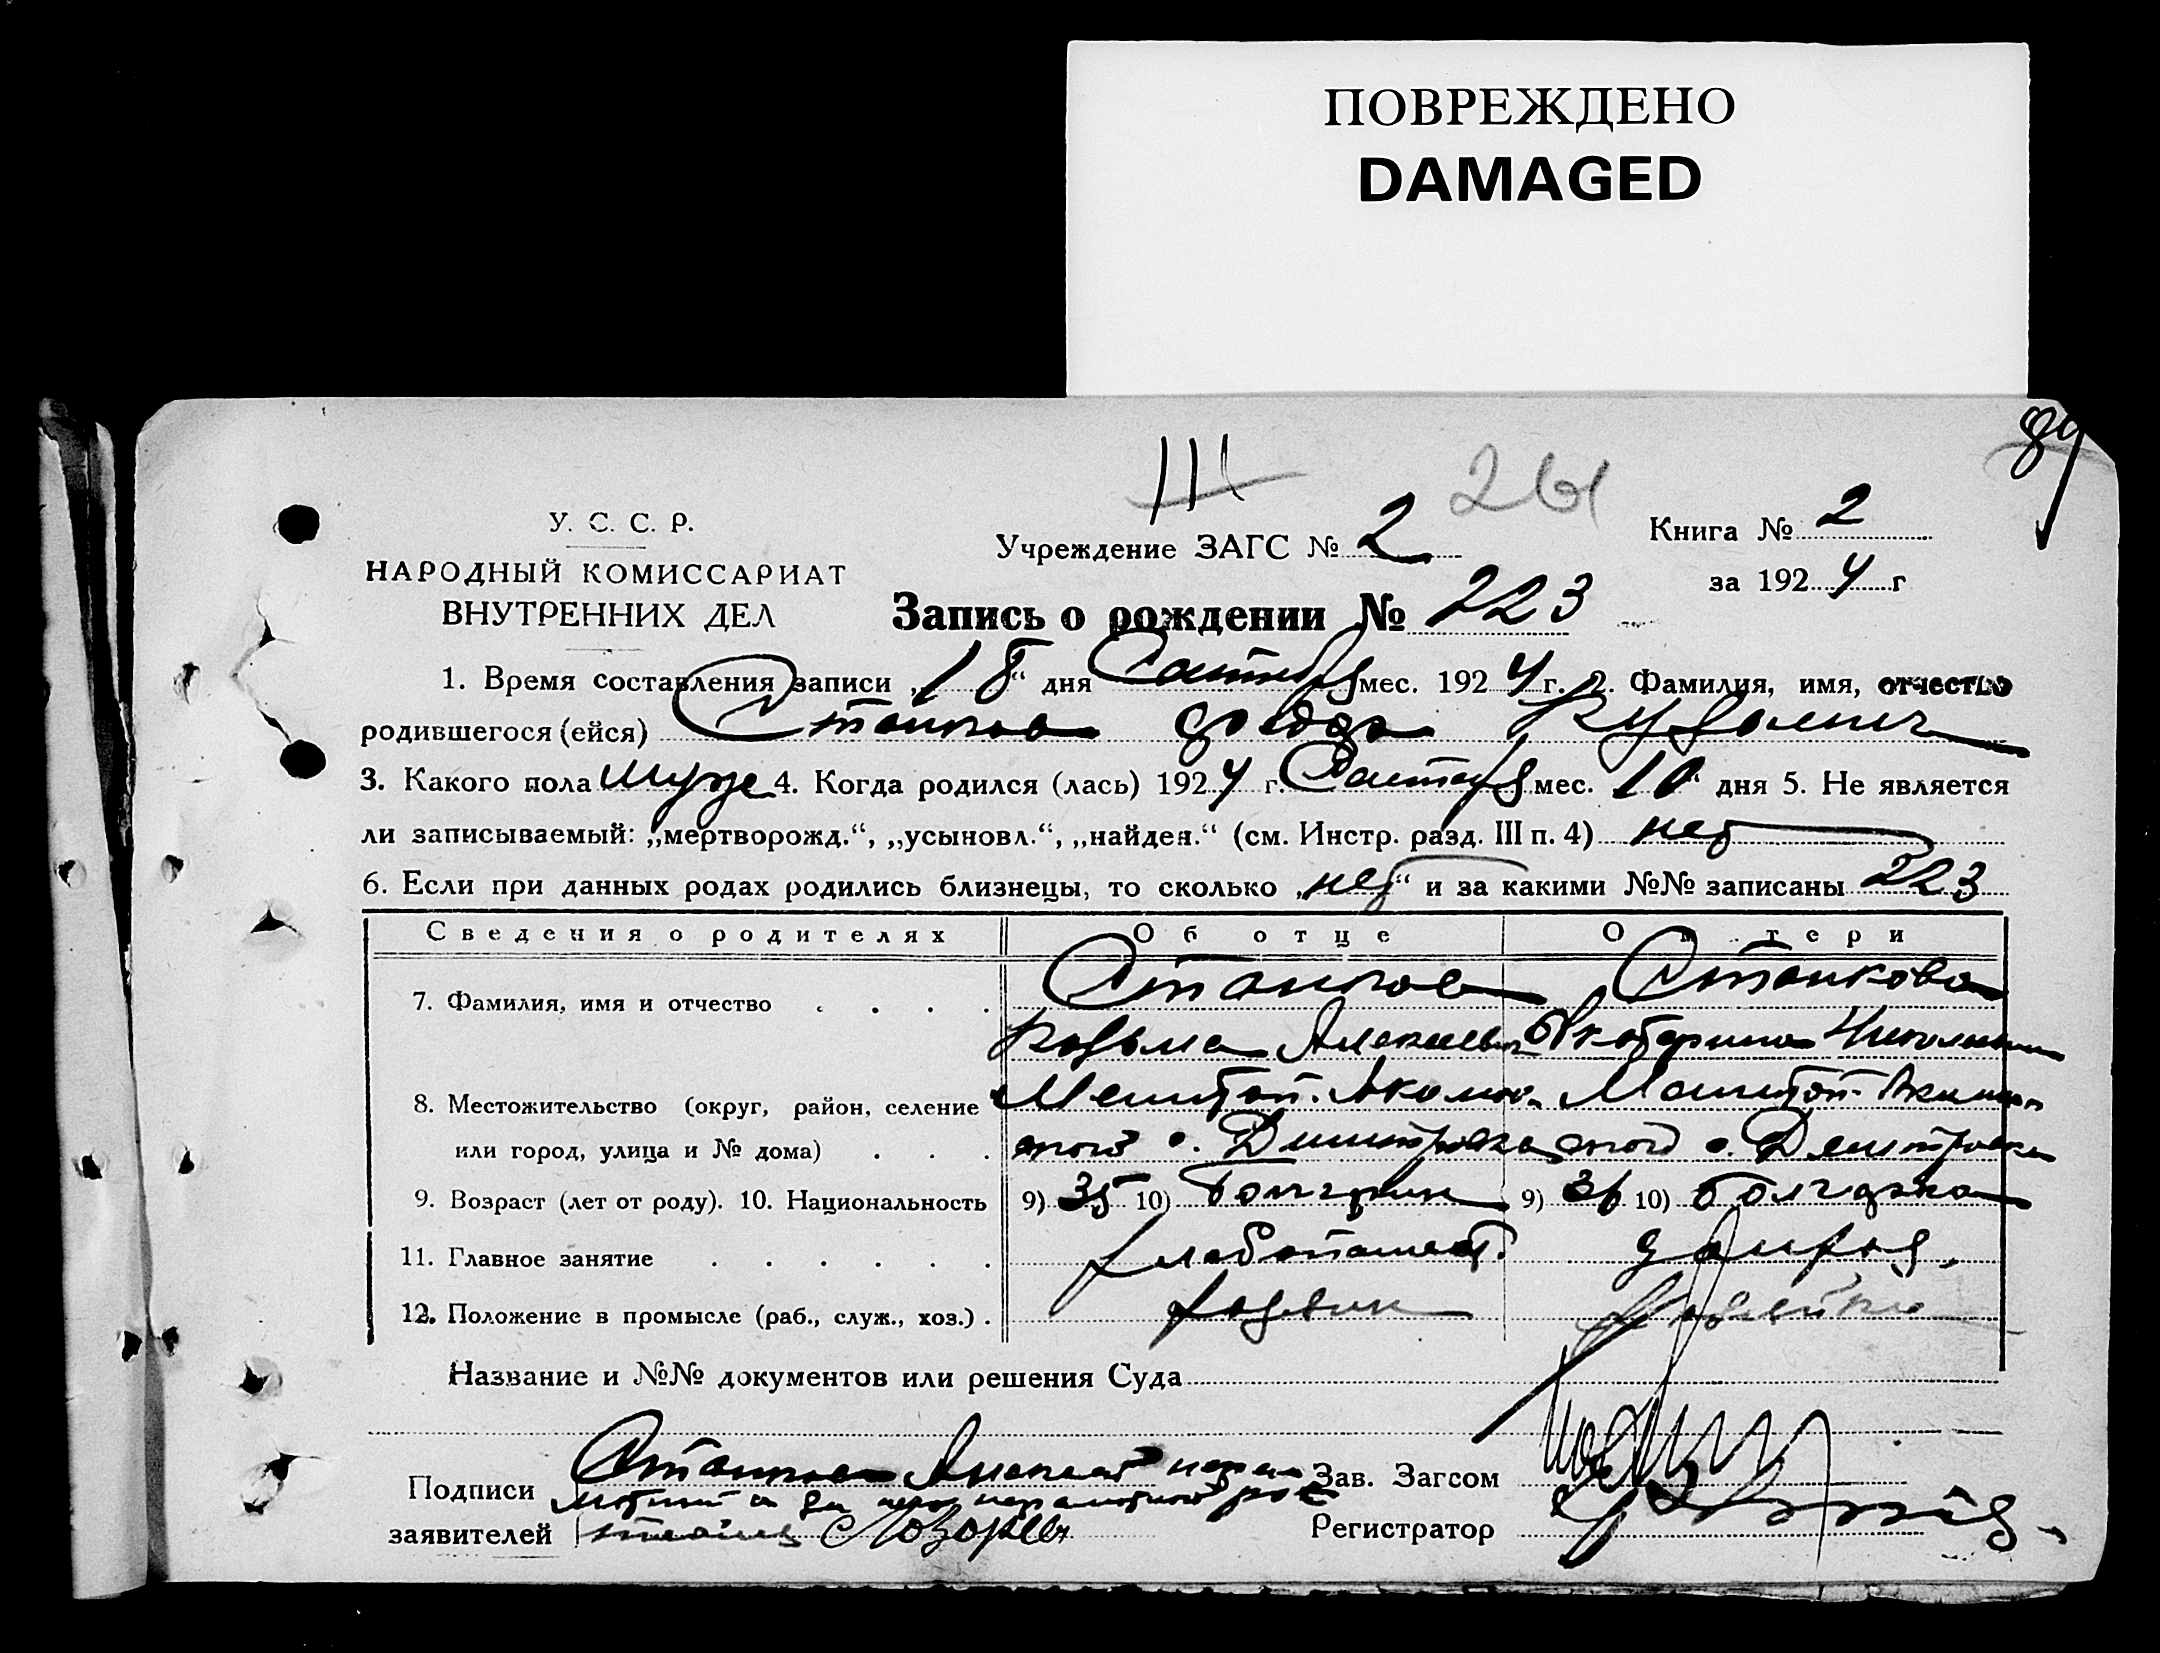 ПОВРЕЖДЕНО
DAMAGED
89
III 261
У. С. С. Р.
НАРОДНЫЙ КОМИССАРИАТ
ВНУТРЕННИХ ДЕЛ
Учреждение ЗАГС № 2
Книга № 2
за 1924 г
Запись о рождении № 223
1. Время составления записи „18“ дня мес. 1924 г. 2. Фамилия, имя, отчество
родившегося (ейся) Станков
3. Какого пола муже 4. Когда родился (лась) 1924 г. мес. 10 дня 5. Не является
ли записываемый: „мертворожд.“, „усыновл.“, „найден.“ (см. Инстр. разд. III п. 4) нет
6. Если при данных родах родились близнецы, то сколько „нет“ и за какими №№ записаны 223
Сведения о родителях Об отце О матери
7. Фамилия, имя и отчество . . . . Станков Станкова
Козьма Алексеевич Екатерина
8. Местожительство (округ, район, селение
или город, улица и № дома) . . . с. Димитровка с. Димитровка
9. Возраст (лет от роду). 10. Национальность 9) 35 10) Болгарин 9) 36 10) болгарка
11. Главное занятие . . . . . . хлебопашест.
12. Положение в промысле (раб., служ., хоз.) . хозяин хозяйка
Название и №№ документов или решения Суда
Подписи Станков Зав. Загсом
заявителей Лозарев Регистратор